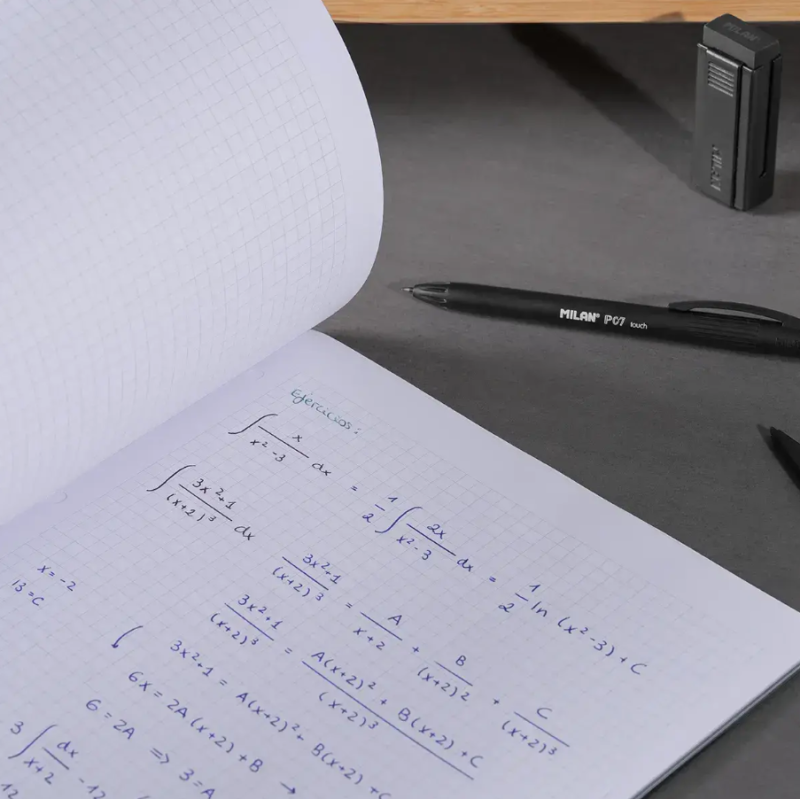 MILAN
MILAN
MILAN® P07 touch
Ejercicios:
∫ x/(x²-3) dx = 1/2 ∫ 2x/(x²-3) dx = 1/2 ln (x²-3) + C
∫ (3x²+1)/(x+2)³ dx
(3x²+1)/(x+2)³ = A/(x+2) + B/(x+2)² + C/(x+2)³
(3x²+1)/(x+2)³ = (A(x+2)² + B(x+2) + C)/(x+2)³
x=-2
13=C
3x²+1 = A(x+2)² + B(x+2) + C
6x = 2A(x+2) + B →
6 = 2A ⇒ 3=A
3 ∫ dx/(x+2) - 12